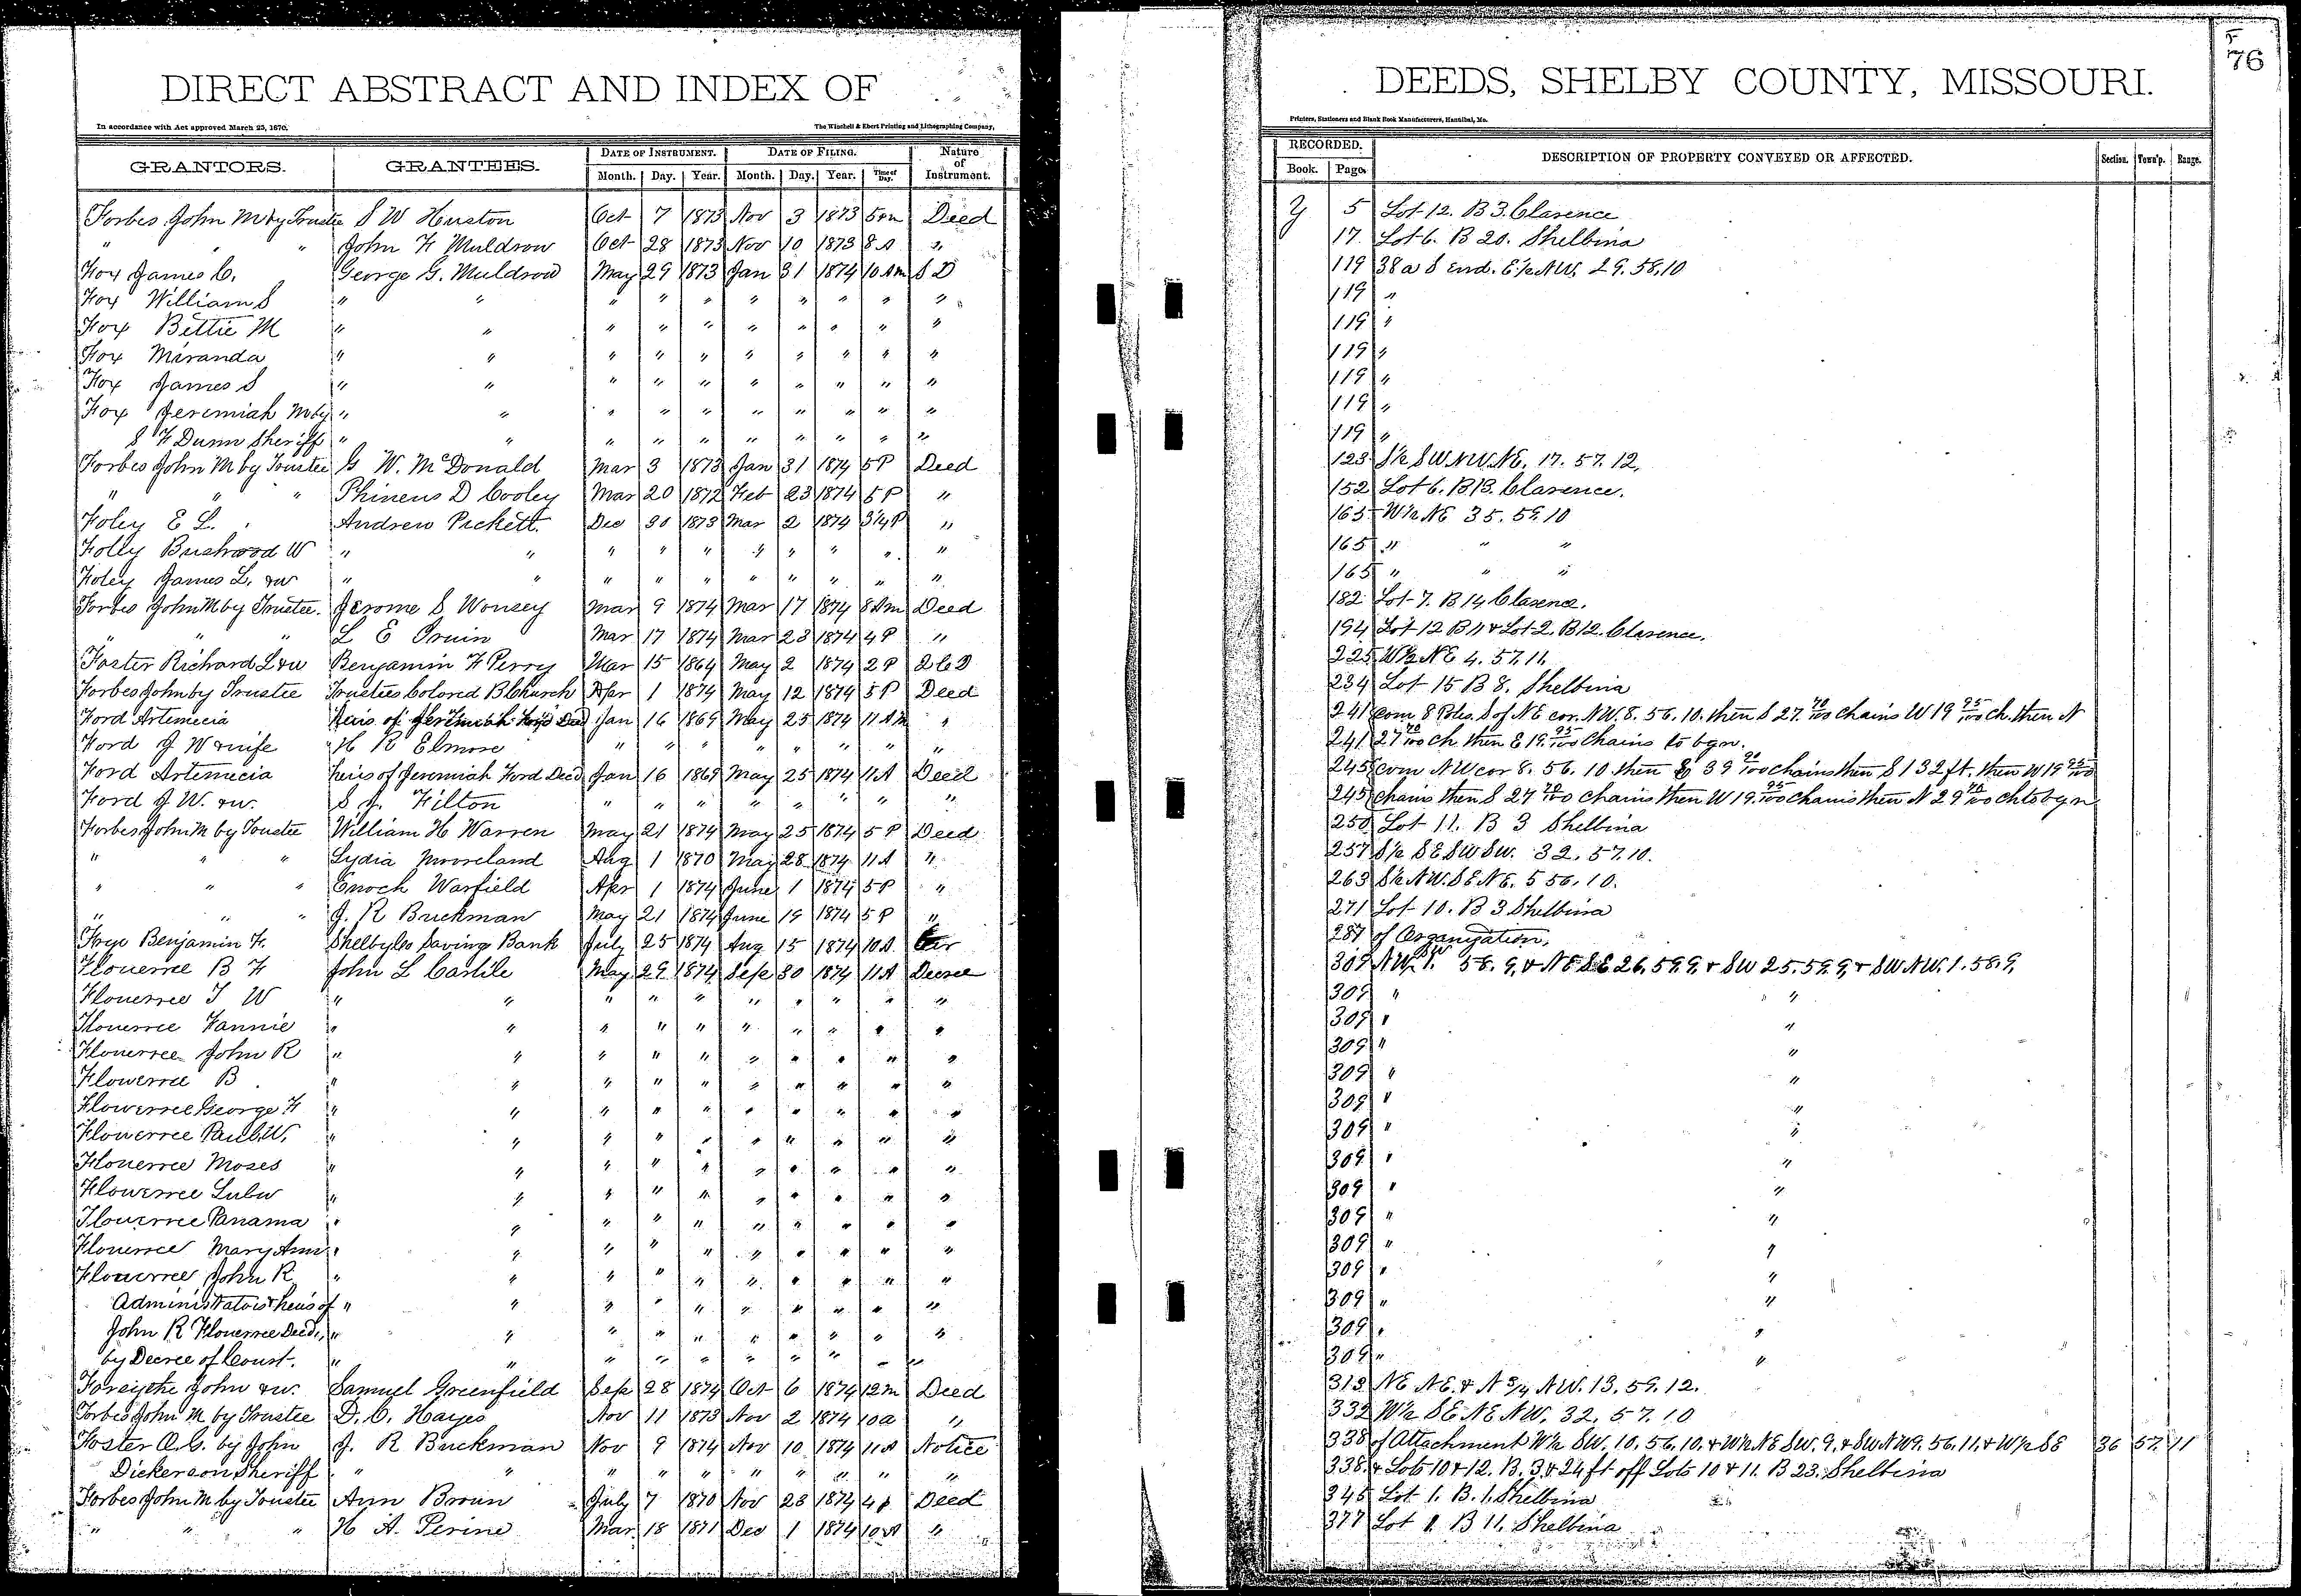 DIRECT ABSTRACT AND INDEX OF
DEEDS, SHELBY COUNTY, MISSOURI.
76
In accordance with Act approved March 25, 1870.
The Winchell & Ebert Printing and Lithographing Company,
Printers, Stationers and Blank Book Manufacturers, Hannibal, Mo.
GRANTORS. GRANTEES. DATE OF INSTRUMENT. DATE OF FILING. Nature of Instrument. RECORDED. DESCRIPTION OF PROPERTY CONVEYED OR AFFECTED. Section. Town'p. Range.
Month. Day. Year. Month. Day. Year. Time of Day. Book. Page.
Forbes John M by Trustee S W Huston Oct 7 1873 Nov 3 1873 5 Pm Deed Y 5 Lot 12. B 3. Clarence
" " " John F Muldrow Oct 28 1873 Nov 10 1873 8 A " 17 Lot 6. B 20. Shelbina
Fox James C. George G. Muldrow May 29 1873 Jan 31 1874 10 Am S D 119 38 a S end. E½ NW. 29. 58. 10
Fox William S " " " " " " " " " " 119 "
Fox Bettie M " " " " " " " " " " 119 "
Fox Miranda " " " " " " " " " " 119 "
Fox James S " " " " " " " " " " 119 "
Fox Jeremiah M by " " " " " " " " " " 119 "
S F Dunn Sheriff " " " " " " " " " " 119 "
Forbes John M by Trustee G W. McDonald Mar 3 1873 Jan 31 1874 5 P Deed 123 S½ SW NW NE. 17. 57. 12.
" " " Phineus D Cooley Mar 20 1872 Feb 23 1874 5 P " 152 Lot 6. B 13. Clarence.
Foley E L. Andrew Pickett. Dec 30 1873 Mar 2 1874 3¼ P " 165 W½ NE 35. 59. 10
Folly Bushrod W " " " " " " " " " " 165 " " "
Foley James L. &w " " " " " " " " " " 165 " " "
Forbes John M by Trustee. Jerome S Wonsey Mar 9 1874 Mar 17 1874 8 Am Deed 182 Lot 7. B 14 Clarence.
" " " L E Irwin Mar 17 1874 Mar 23 1874 4 P " 194 Lot 12 B 11 & Lot 2. B 12. Clarence.
Foster Richard L &w Benjamin F Perry Mar 15 1864 May 2 1874 2 P Q C D 225 W½ NE 4. 57. 11.
Forbes John by Trustee Trustees Colored B Church Apr 1 1874 May 12 1874 5 P Deed 234 Lot 15 B 8. Shelbina
Ford Artemecia Heirs of Jeremiah Ford Decd Jan 16 1869 May 25 1874 11 Am " 241 Com 8 Poles S of NE cor. NW. 8. 56. 10. then S 27. 70/100 chains W 19 95/100 ch. then N
Ford J W & wife H R Elmore " " " " " " " " 241 27 70/100 ch then E 19. 95/100 Chains to bgn.
Ford Artemecia heirs of Jeremiah Ford Decd Jan 16 1869 May 25 1874 11 A Deed 245 com NW cor 8. 56. 10 then E 39 90/100 chains then S 132 ft. then W 19 95/100
Ford J W. &w. S J. Hilton " " " " " " " " 245 chains then S 27 70/100 chains then W 19. 95/100 chains then N 29 70/100 ch to bgn
Forbes John M by Trustee William H Warren May 21 1874 May 25 1874 5 P Deed 250 Lot 11. B 3 Shelbina
" " " Lydia Mooreland Aug 1 1870 May 28 1874 11 A " 257 S½ SE SW SW. 32. 57. 10.
" " " Enoch Warfield Apr 1 1874 June 1 1874 5 P " 263 S½ NW. SE NE. 5 56. 10.
" " " J. R Buckman May 21 1874 June 19 1874 5 P " 271 Lot 10. B 3 Shelbina
Benjamin F. Shelby Co Savings Bank July 25 1874 Aug 15 1874 10 A. 287 of Organization.
Flouerree B F John L Carlile May 29 1874 Sep 30 1874 11 A Decree 309 NW 1. 58. 9. & NE SE 26. 59. 9. & SW 25. 59. 9. & SW NW. 1. 58. 9.
Flouerree T W " " " " " " " " " " 309 " "
Flouerree Fannie " " " " " " " " " " 309 " "
Flouerree John R " " " " " " " " " " 309 " "
Flowerree B. " " " " " " " " " " 309 " "
Flowerree George F " " " " " " " " " " 309 " "
Flowerree Paul W. " " " " " " " " " " 309 " "
Flouerree Moses " " " " " " " " " " 309 " "
Flowerree Lulu " " " " " " " " " " 309 " "
Flouerree Panama " " " " " " " " " " 309 " "
Flouerree Mary Ann " " " " " " " " " " 309 " "
Flouerree John R " " " " " " " " " " 309 " "
Administrator & heirs of " " " " " " " " " " 309 " "
John R Flouerree Decd. " " " " " " " " " " 309 " "
by Decree of Court. " " " " " " " " " " 309 " "
Forsythe John &w. Samuel Greenfield Sep 28 1874 Oct 6 1874 12 m Deed 313 NE NE. & N ¾ NW. 13. 59. 12.
Forbes John M by Trustee D. C. Hayes Nov 11 1873 Nov 2 1874 10 a " 332 W½ SE NE NW. 32. 57. 10
Foster A. G. by John J. R Buckman Nov 9 1874 Nov 10 1874 11 A Notice 338 of Attachment W½ SW. 10. 56. 10. & W½ NE SW. 9. & SW NW 9. 56. 11. & W½ SE 36 57. 11
Dickerson Sheriff " " " " " " " " " " 338 & Lots 10 & 12. B. 3. & 24 ft off Lots 10 & 11. B 23. Shelbina
Forbes John M by Trustee Ann Brown July 7 1870 Nov 23 1874 4 P Deed 345 Lot 1. B. 1. Shelbina
" " " H A. Perine Mar 18 1871 Dec 1 1874 10 A " 377 Lot 1. B 11. Shelbina